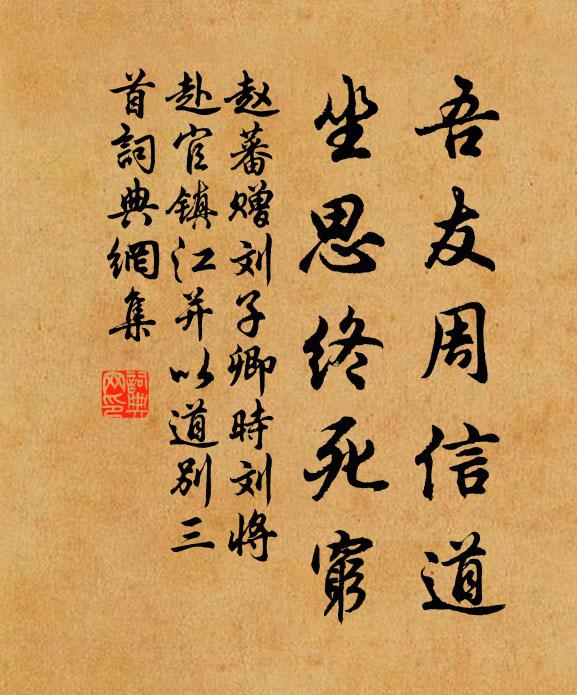 吾友周信道
坐思终死窮
赵蕃赠刘子卿時刘将
赴官镇江并以道别三
首詞典網集
詞典網印